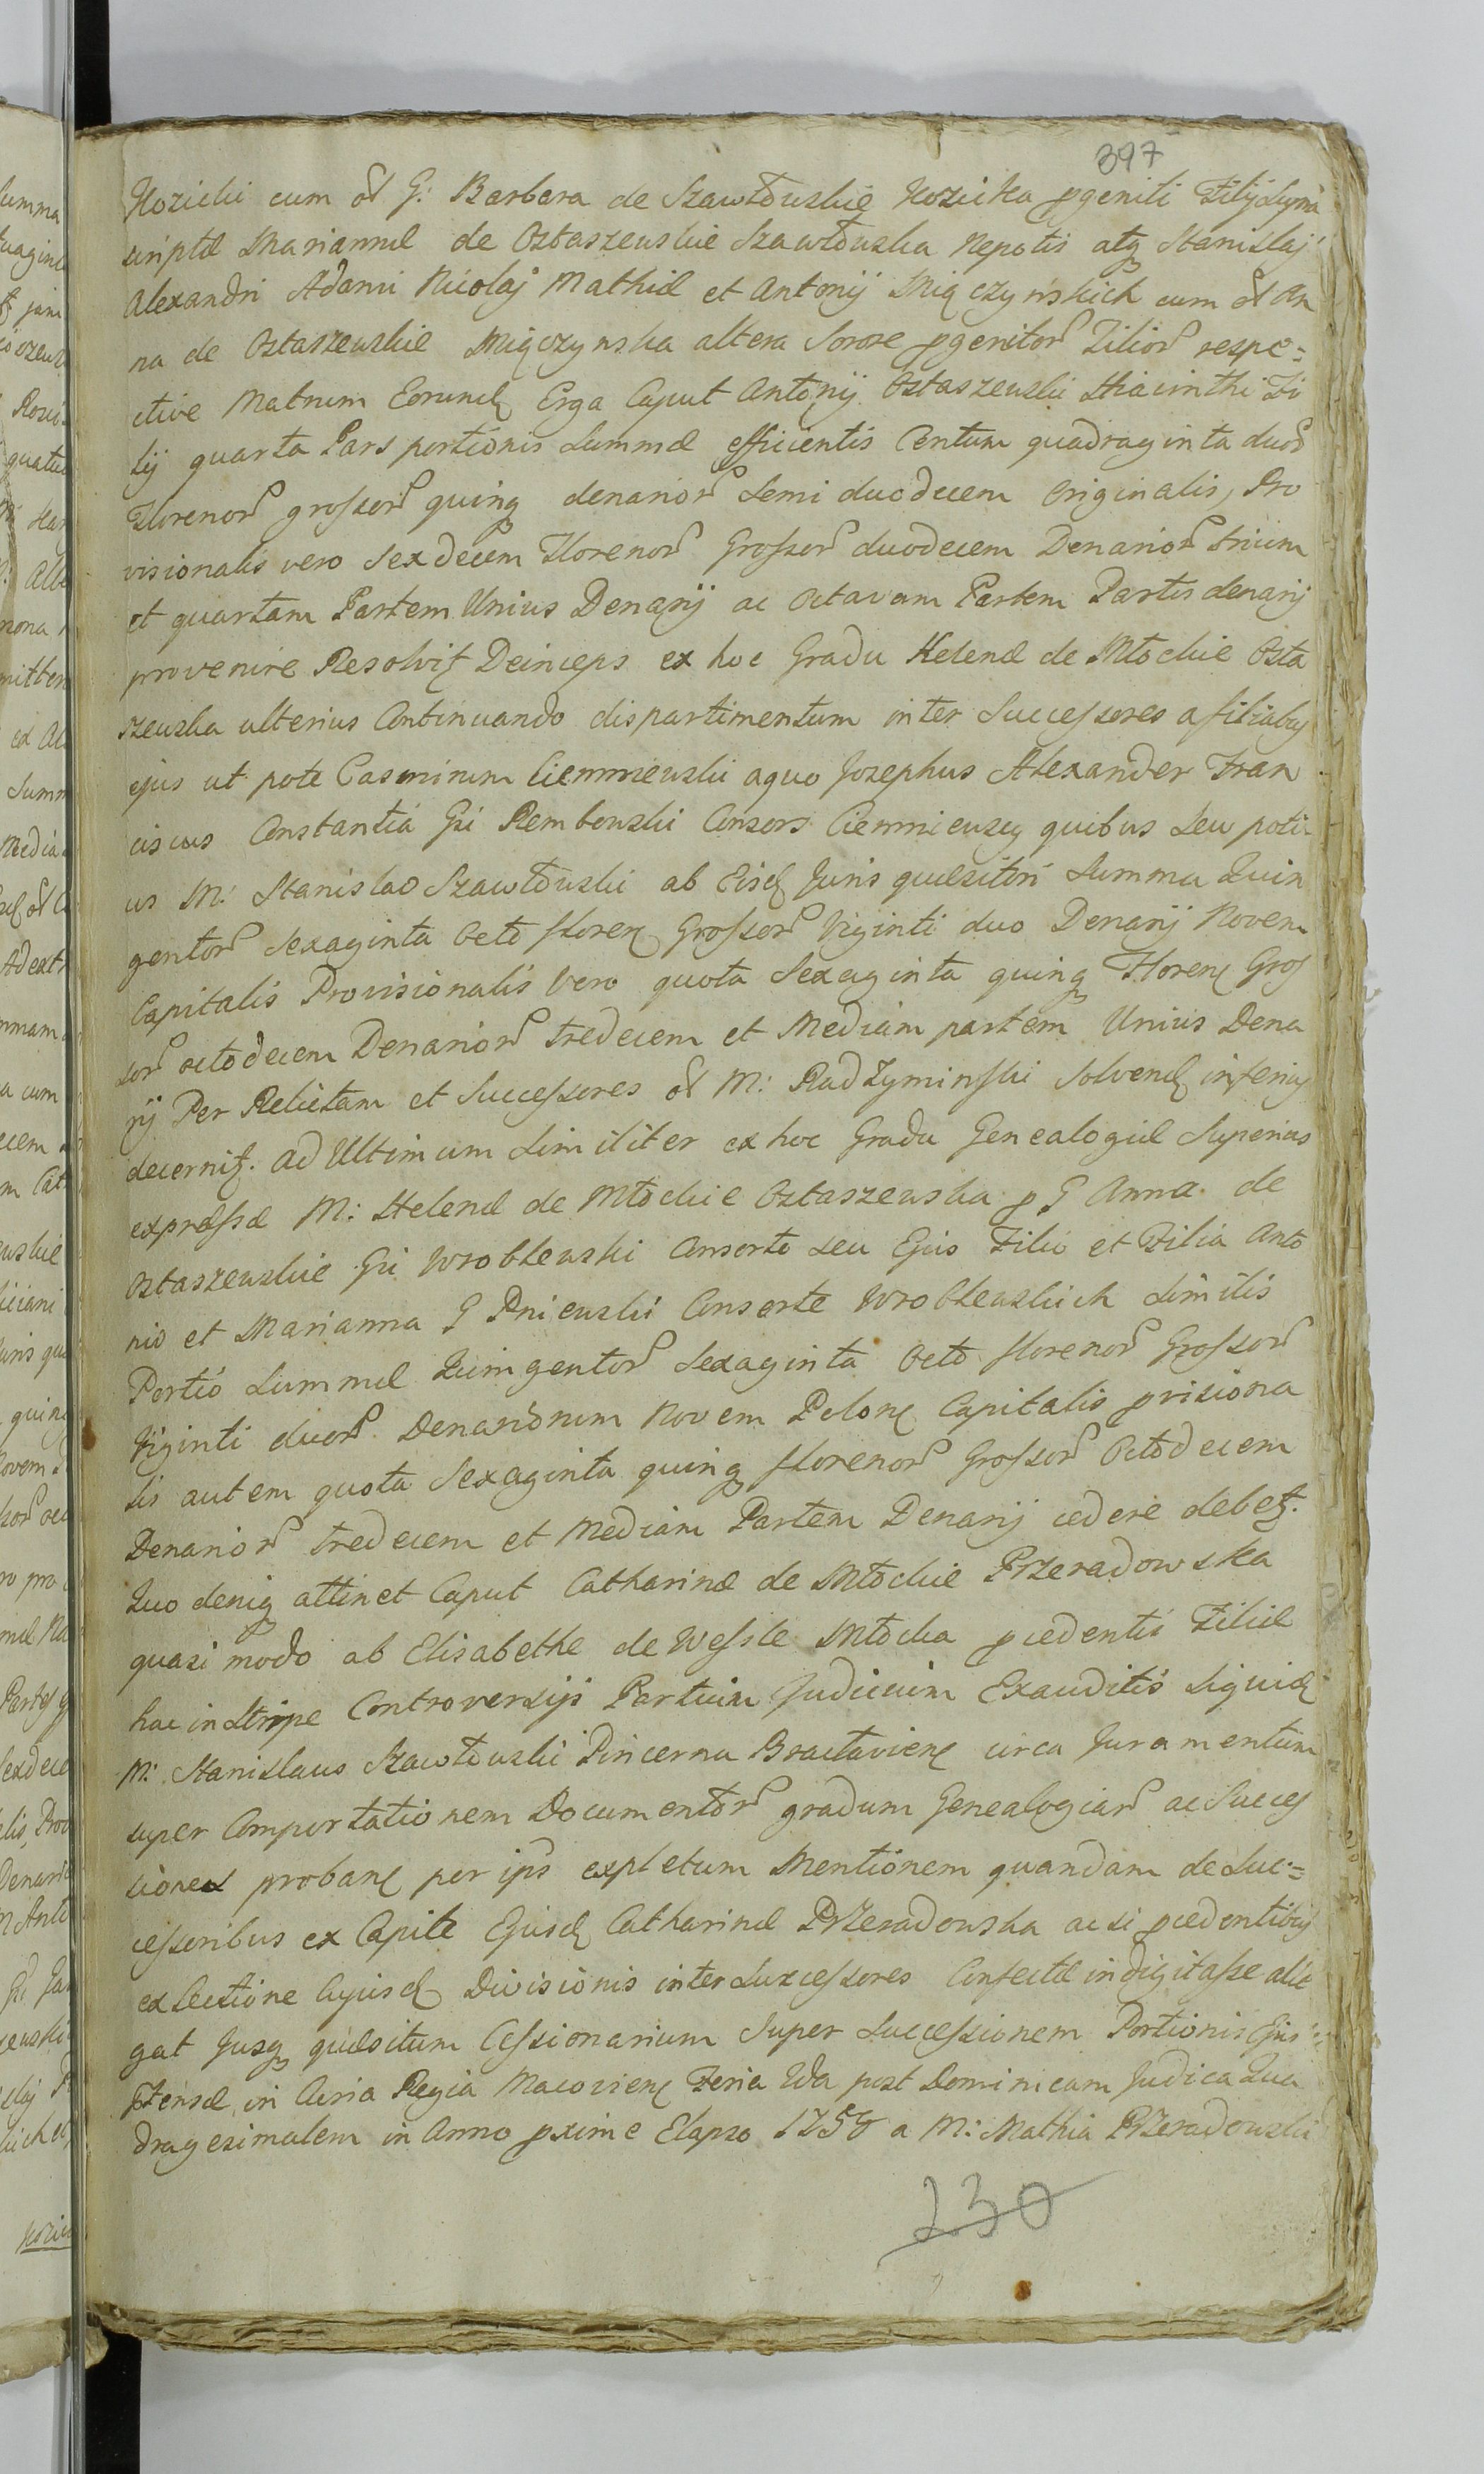 397
Kozicki cum ol G: Barbara de Szawłowskie Kozicka pgeniti Filij Supra
scriptæ Mariannæ de Ostaszewskie Szawłowska Nepotis atq Stanislaj
Alexandri Adami Nicolaj Mathiæ et Antonij Miączyńskich cum ol An
na de Ostaszewskie Miączynska altera Sorore pgenitor Filior respe=
ctive Matrum Eorund Erga Caput Antonij Ostaszewski Hiacinthi Fi
lij quarta Pars portionis Summæ efficientis Centum quadraginta duor
Florenor grossor quinq denarior Semi duodecem Originalis, Pro
visionalis vero Sexdecem Florenor Grossor duodecem Denarior trium
et quartam Partem Unius Denarij ac Octavam Partem Partis denarij
provenire Resolvit Deinceps ex hoc Gradu Helenæ de Młockie Osta
szewska ulterius Continuando dispartimentum inter Successores a filiabus
ejus ut pote Casmirum Ciemniewski a quo Josephus Alexander Fran
ciscus Constantia Gsi Rembowski Consors Ciemniewscy quibus Seu poti
us M: Stanislao Szawłowski ab Eisd Juris quæsitori Summa Quin
gentor Sexaginta Octo floren Grossor Viginti duo Denarij Novem
Capitalis Provisionalis Vero quota Sexaginta quinq Floren Gros
sor octodecem Denarior tredecem et Mediam partem Unius Dena
rij Per Relictam et Successores ol M: Radzyminski Solvend inferius
decernit. Ad Ultimum Similiter ex hoc Gradu Genealogiæ Superius
expressæ M: Helenæ de Młockie Ostaszewska p G Anna de
Ostaszewskie Gsi Wroblewski Consorte seu Ejus Filio et Filia Anto
nio et Marianna G Pniewski Consorte Wroblewskich Similis
Portio Summæ Quingentor Sexaginta Octo florenor Grossor
Viginti duor Denariorum Novem Polon Capitalis pvisiona
lis autem quota Sexaginta quinq florenor Grossor Octodecem
Denarior tredecem et Mediam Partem Denarij cedere debet.
Quo deniq attinet Caput Catharinæ de Młockie Przeradowska
quasi modo ab Elisabethe de Wessle Młocka pcedentis Filiæ
hac in Stirpe Controversijs Partium Judicium Exauditis Siquid
M: Stanislaus Szawłowski Pincerna Bractavien circa Juramentum
super Comportationem Documentor gradum Genealogiar ac Succes
sionem proban per ips expletum Mentionem quandam de Suc=
cessoribus ex Capite Ejusd Catharinæ Przeradowska ac si pcedentibus
ex Lectione Cujusd Divisionis inter Successores Confectæ indigitasse alle
gat Jusq quæsitum Cessionarium Super Successionem Portionis Ejus
in Curia Regia Macovien Feria post Dominicam Judica Qua
dragesimalem in Anno pxime Elapso a M: Mathia Przeradowski
230